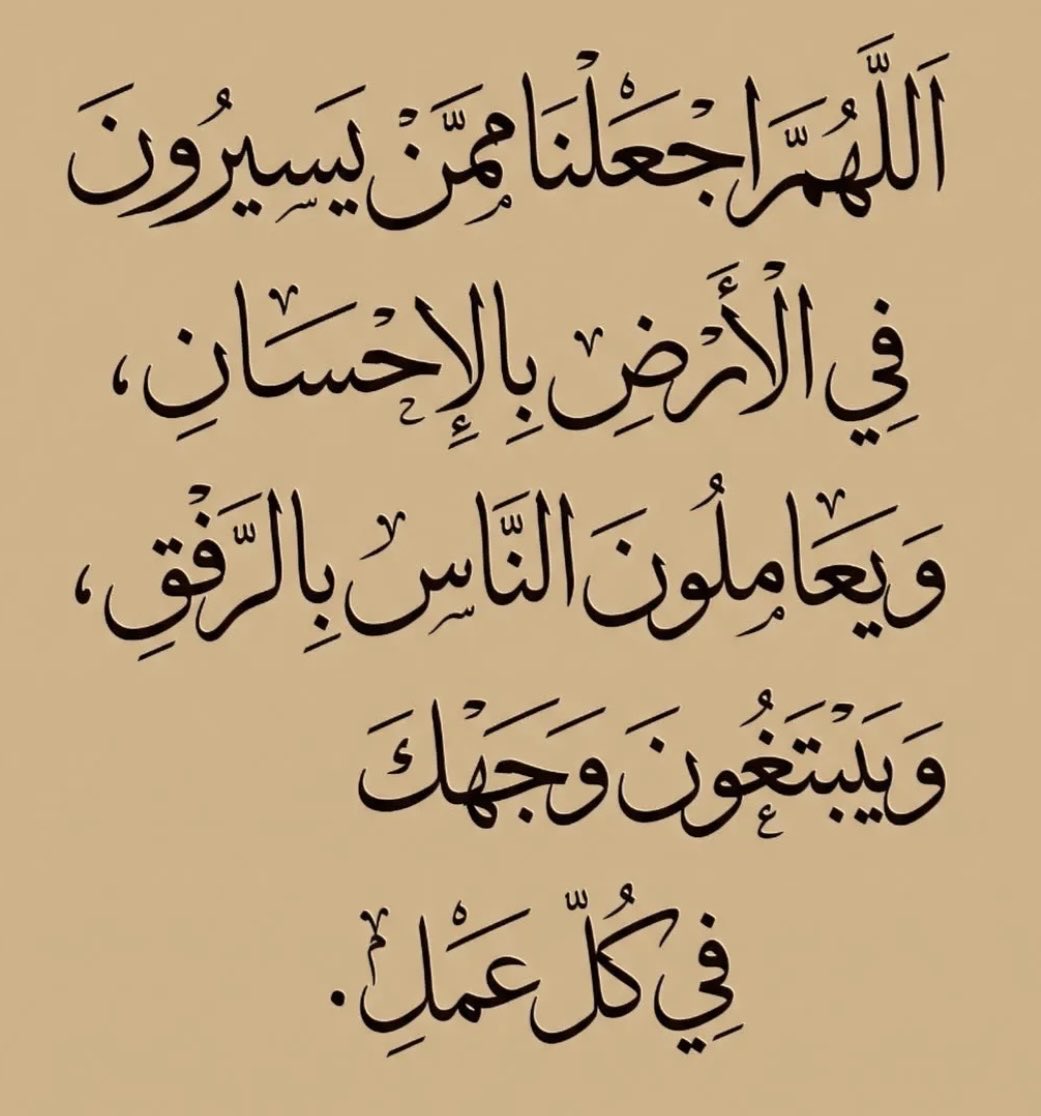 اَللَّهُمَّ اجْعَلْنَا مِمَّنْ يَسِيرُونَ
فِي الْأَرْضِ بِالْإِحْسَانِ،
وَيَعَامِلُونَ النَّاسِ بِالرَّفْقِ،
وَيَبْتَغُونَ وَجَهْكَ
فِي كُلّ عَمْلِ.